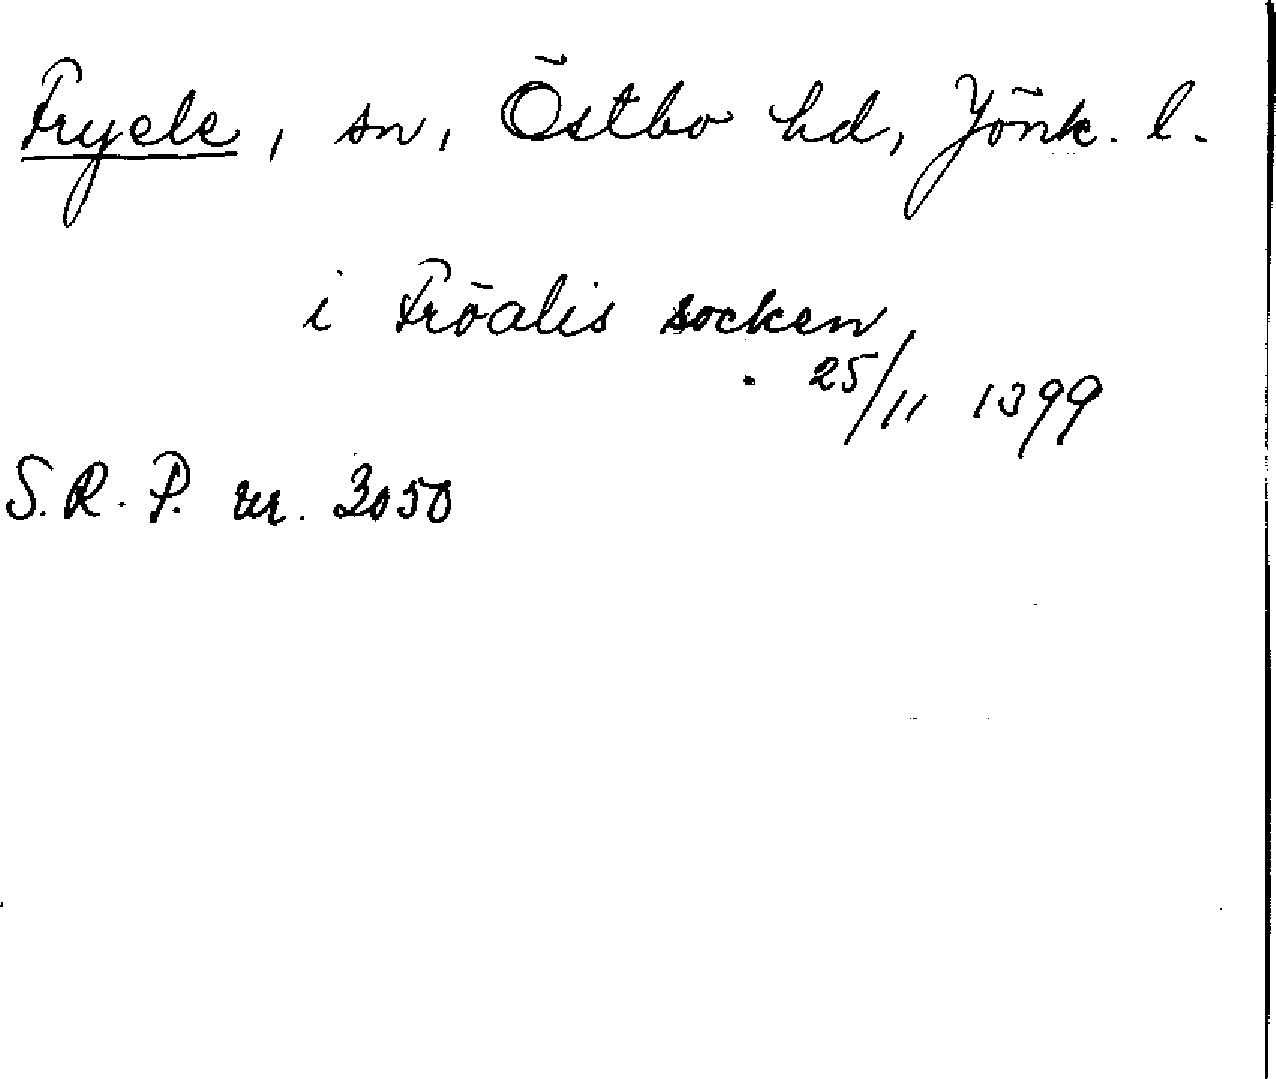 Fryele, sn, Östbo hd, Jönk. l.
i Fröalis socken
25/11 1399
S.R.P. nr. 3050